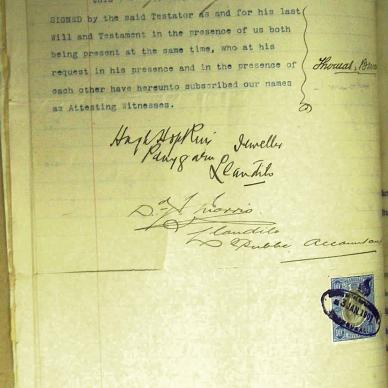 SIGNED by the said Testator as and for his last
Will and Testament in the presence of us both
being present at the same time, who at his
request in his presence and in the presence of
each other have hereunto subscribed our names
as Attesting Witnesses.
Thomas
Hugh Hopkin Jeweller
Llandilo
Morris
Llandilo
Public Accountan
JAN